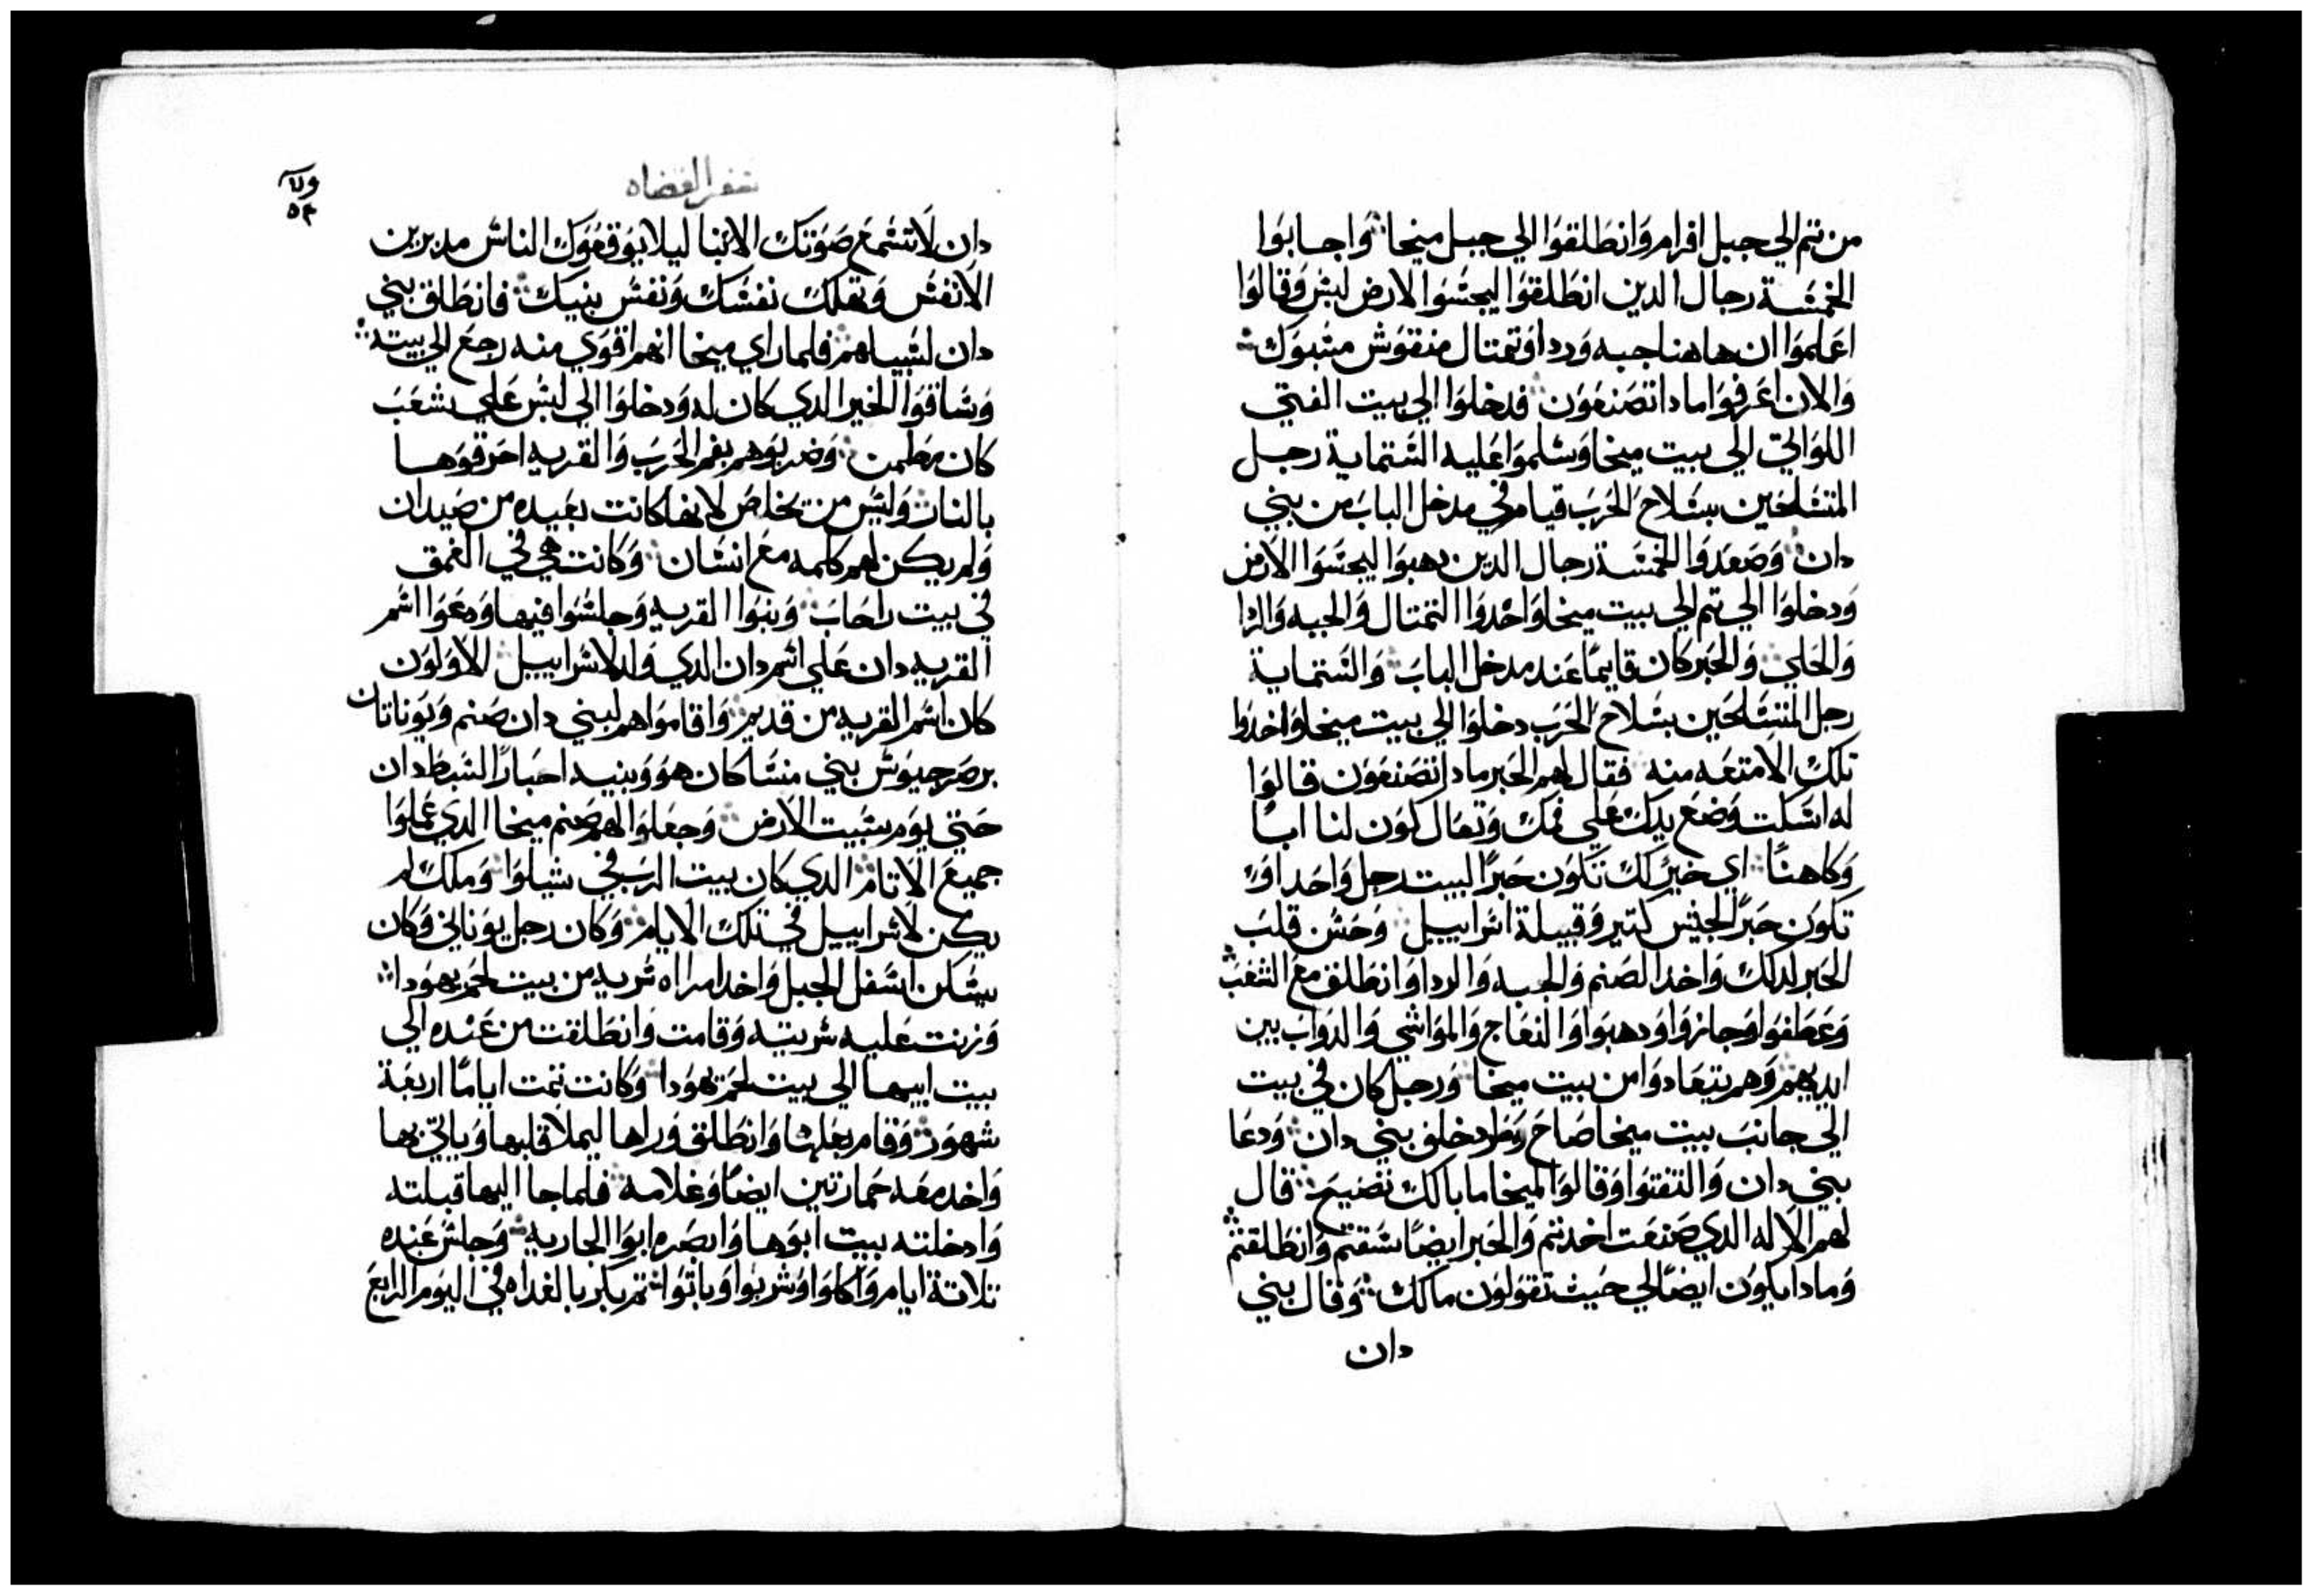 من تم الي جبل افرام وانطلقوا الي جبل ميخا واجابوا
الخمسة رجال الدين انطلقوا ليجسوا الارض ليش وقالوا
اعلموا ان هاهنا جبه وردا وتمتال منقوش مسبوك
والان اعرفوا مادا تصنعون فدخلوا الي بيت الفتي
اللواني الي بيت ميخا وسلموا عليه الستماية رجل
المتسلحين بسلاح الحرب قيام في مدخل الباب من بني
دان وصعدوا الخمسة رجال الدين دهبوا ليجسوا الارض
ودخلوا الي تم الي بيت ميخا واخدوا التمتال والجبه والردا
والحلي والحبر كان قايما عند مدخل الباب والستماية
رجل المتسلحين بسلاح الحرب دخلوا الي بيت ميخا واخدوا
تلك الامتعه منه فقال لهم الحبر مادا تصنعون قالوا
له اسكت وضع يدك علي فمك وتعال كون لنا ابا
وكاهنا اي خير لك تكون حبرا لبيت رجل واحد او
تكون حبرا لجنس كتير وقبيلة اسراييل وحسن قلب
الحبر لدلك واخد الصنم والجبه والردا وانطلق مع الشعب
وعطفوا وجازوا ودهبوا والنعاج والمواشي والدواب بين
ايديهم وهم يتعادوا من بيت ميخا ورجل كان في بيت
الي جانب بيت ميخا صاح وطرد خلف بني دان ودعا
بني دان والتفتوا وقالوا لميخا ما بالك تصيح قال
لهم الاله الدي صنعت اخدتم والحبر ايضا سقتم وانطلقتم
ومادا يكون ايضا لي حيث تقولون مالك وقال بني
دان
سفر القضاه
دان لا تسمع صوتك الاتبنا ليلا يوقعوك الناس مديرين
الانفس وتهلك نفسك ونفس بنيك فانطلق بني
دان لسبيلهم فلما راي ميخا انهم اقوي منه رجع الي بيته
وساقوا الخير الدي كان له ودخلوا الي ليش علي شعب
كان مطمن وضربوهم بفم الحرب والقريه احرقوها
بالنار وليس من يخلص لانها كانت بعيده من صيدان
ولم يكن لهم كلمه مع انسان وكانت هي في العمق
في بيت راحاب وبنوا القريه وجلسوا فيها ودعوا اسم
القريه دان علي اسم دان الدي ولد لاسراييل الاولون
كان اسم القريه من قديم واقاموا هم لبني دان صنم ويوناتان
بر صرجيوش بني منسا كان هو وبنيه احبارا لسبط دان
حتي يوم سبيت الارض وجعلوا لهم صنم ميخا الدي عملوا
جميع الاتام الدي كان بيت الرب في شيلوا وملك لم
يكن لاسراييل في تلك الايام وكان رجل يوناني وكان
يسكن اسفل الجبل واخد امراه سريه من بيت لحم يهودا
وزنت عليه سريته وقامت وانطلقت من عنده الي
بيت ابيها الي بيت لحم يهودا وكانت تمت اياما اربعة
شهور وقام بعلها وانطلق وراها ليملا قلبها وياتي بها
واخد معه حمارتين ايضا وغلامه فلما جا اليها قبلته
وادخلته بيت ابوها وابصره ابوا الجاريه وجلس عنده
تلاتة ايام واكلوا وشربوا وباتوا تم بكر بالغداه في اليوم الرابع